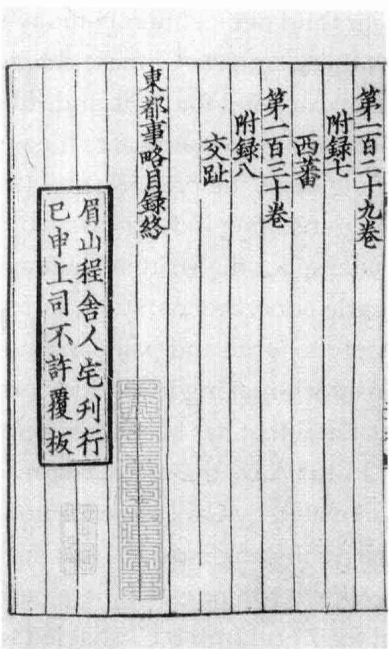 第一百二十九卷
附録七
西蕃
第一百三十卷
附録八
交趾
東都事略目録終
眉山程舍人宅刋行
已申上司不許覆板